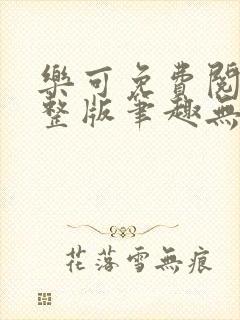 樂可免費閱
整版筆趣無
花落雪無痕